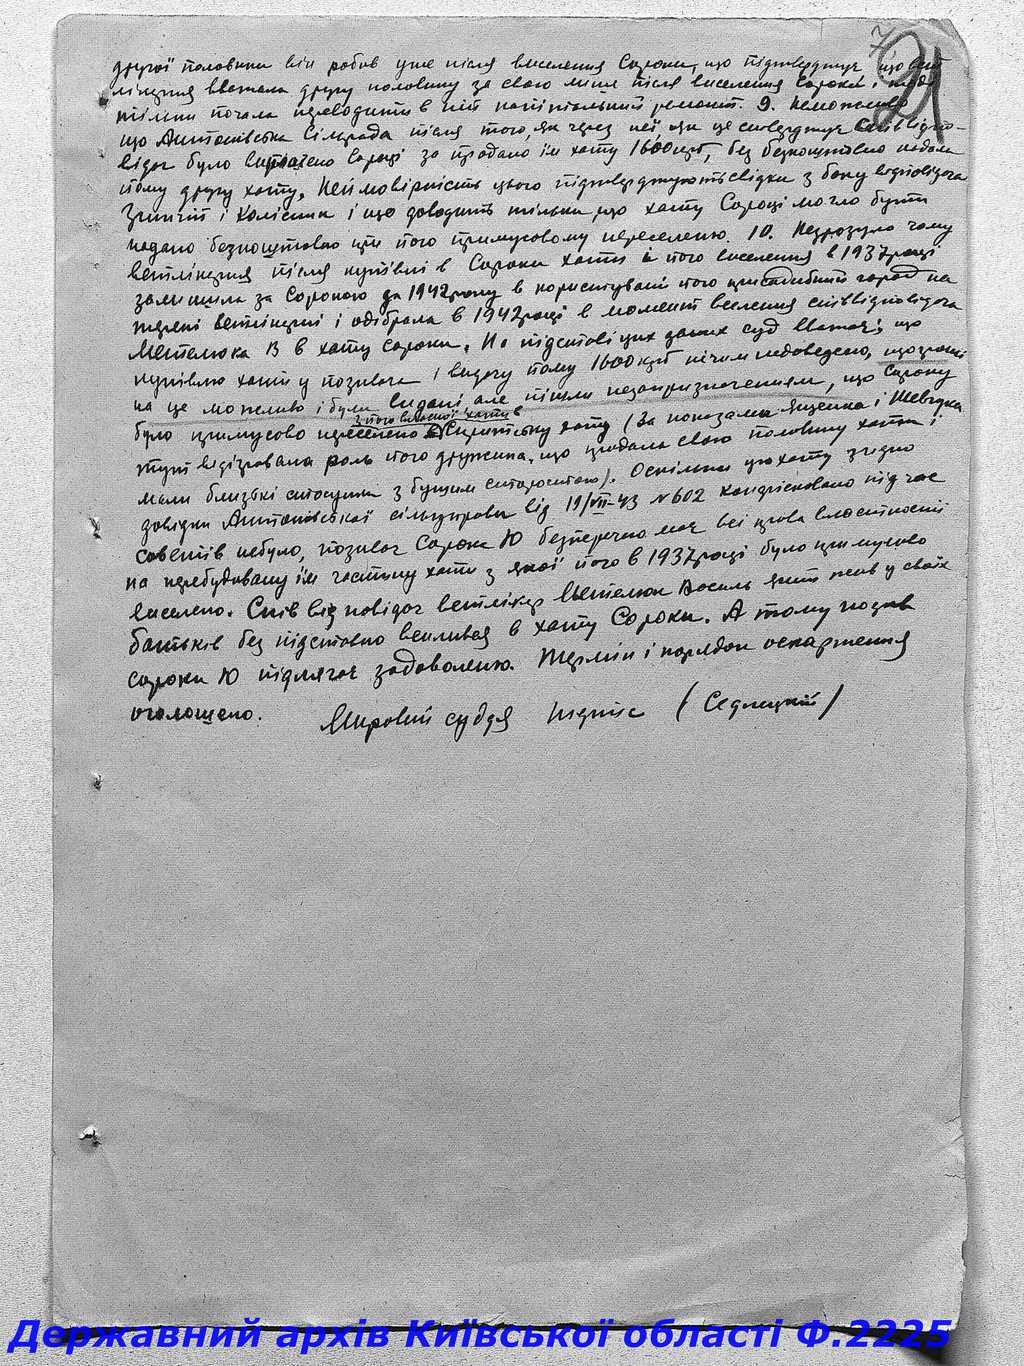 21
другої половини він робив уже після виселення Сороки, що підтверджує що
лікерня вважала другу половину за свою лише після виселення Сороки і
тільки почала переводити в ній капітальний ремонт. 9. Неможливо
що Антонівська Сільрада після того, як через неї, як це стверджує співвідпо-
відач було сплачено Сороці за продано їм хату 1600 крб, без безкоштовно надала
йому другу хату. Неймовірність цього підтверджують свідки з боку відповідача
і Колісник і що доводить тільки що хату Сороці могло бути
надано безкоштовно при його примусовому переселенню. 10. Незрозуло чому
ветлікерня після купівлі в Сороки хати й його виселення в 1937 році
залишила за Сорокою до 1942 року в користуванні його присадибний город на
терені ветлікерні і одібрала в 1942 році в момент вселення співвідповідача
Метелюка В в хату Сороки. На підставі цих даних суд вважає, що
купівлю хати у позивача і видачу йому 1600 крб нічим недоведено, що гроші
на це можливо і були видані але пішли незапризначенням, що Сороку
з його власної хати в
було примусово переселено Скрипську хату (За показами Яценка і Шевчука
тут відігравала роль його дружина, що продала свою половину хати і
мали близькі стосунки з бувшим ). Оскільки цю хату згідно
довідки Антонівської сільуправи від 19/VII-43 № 602 конфісковано під час
совєтів небуло, позивач Сорока Ю безперечно має всі права власності
на перебудовану їм частину хати з якої його в 1937 році було примусово
виселено. Співвідповідач ветлікар Метелюк Василь який жив у своїх
батьків без підставно вселився в хату Сороки. А тому позив
Сороки Ю підлягає задоволеню. Термін і порядок оскарження
оголошено.
Мировий суддя підпис (Седлецкий)
Державний архів Київської області Ф.2225